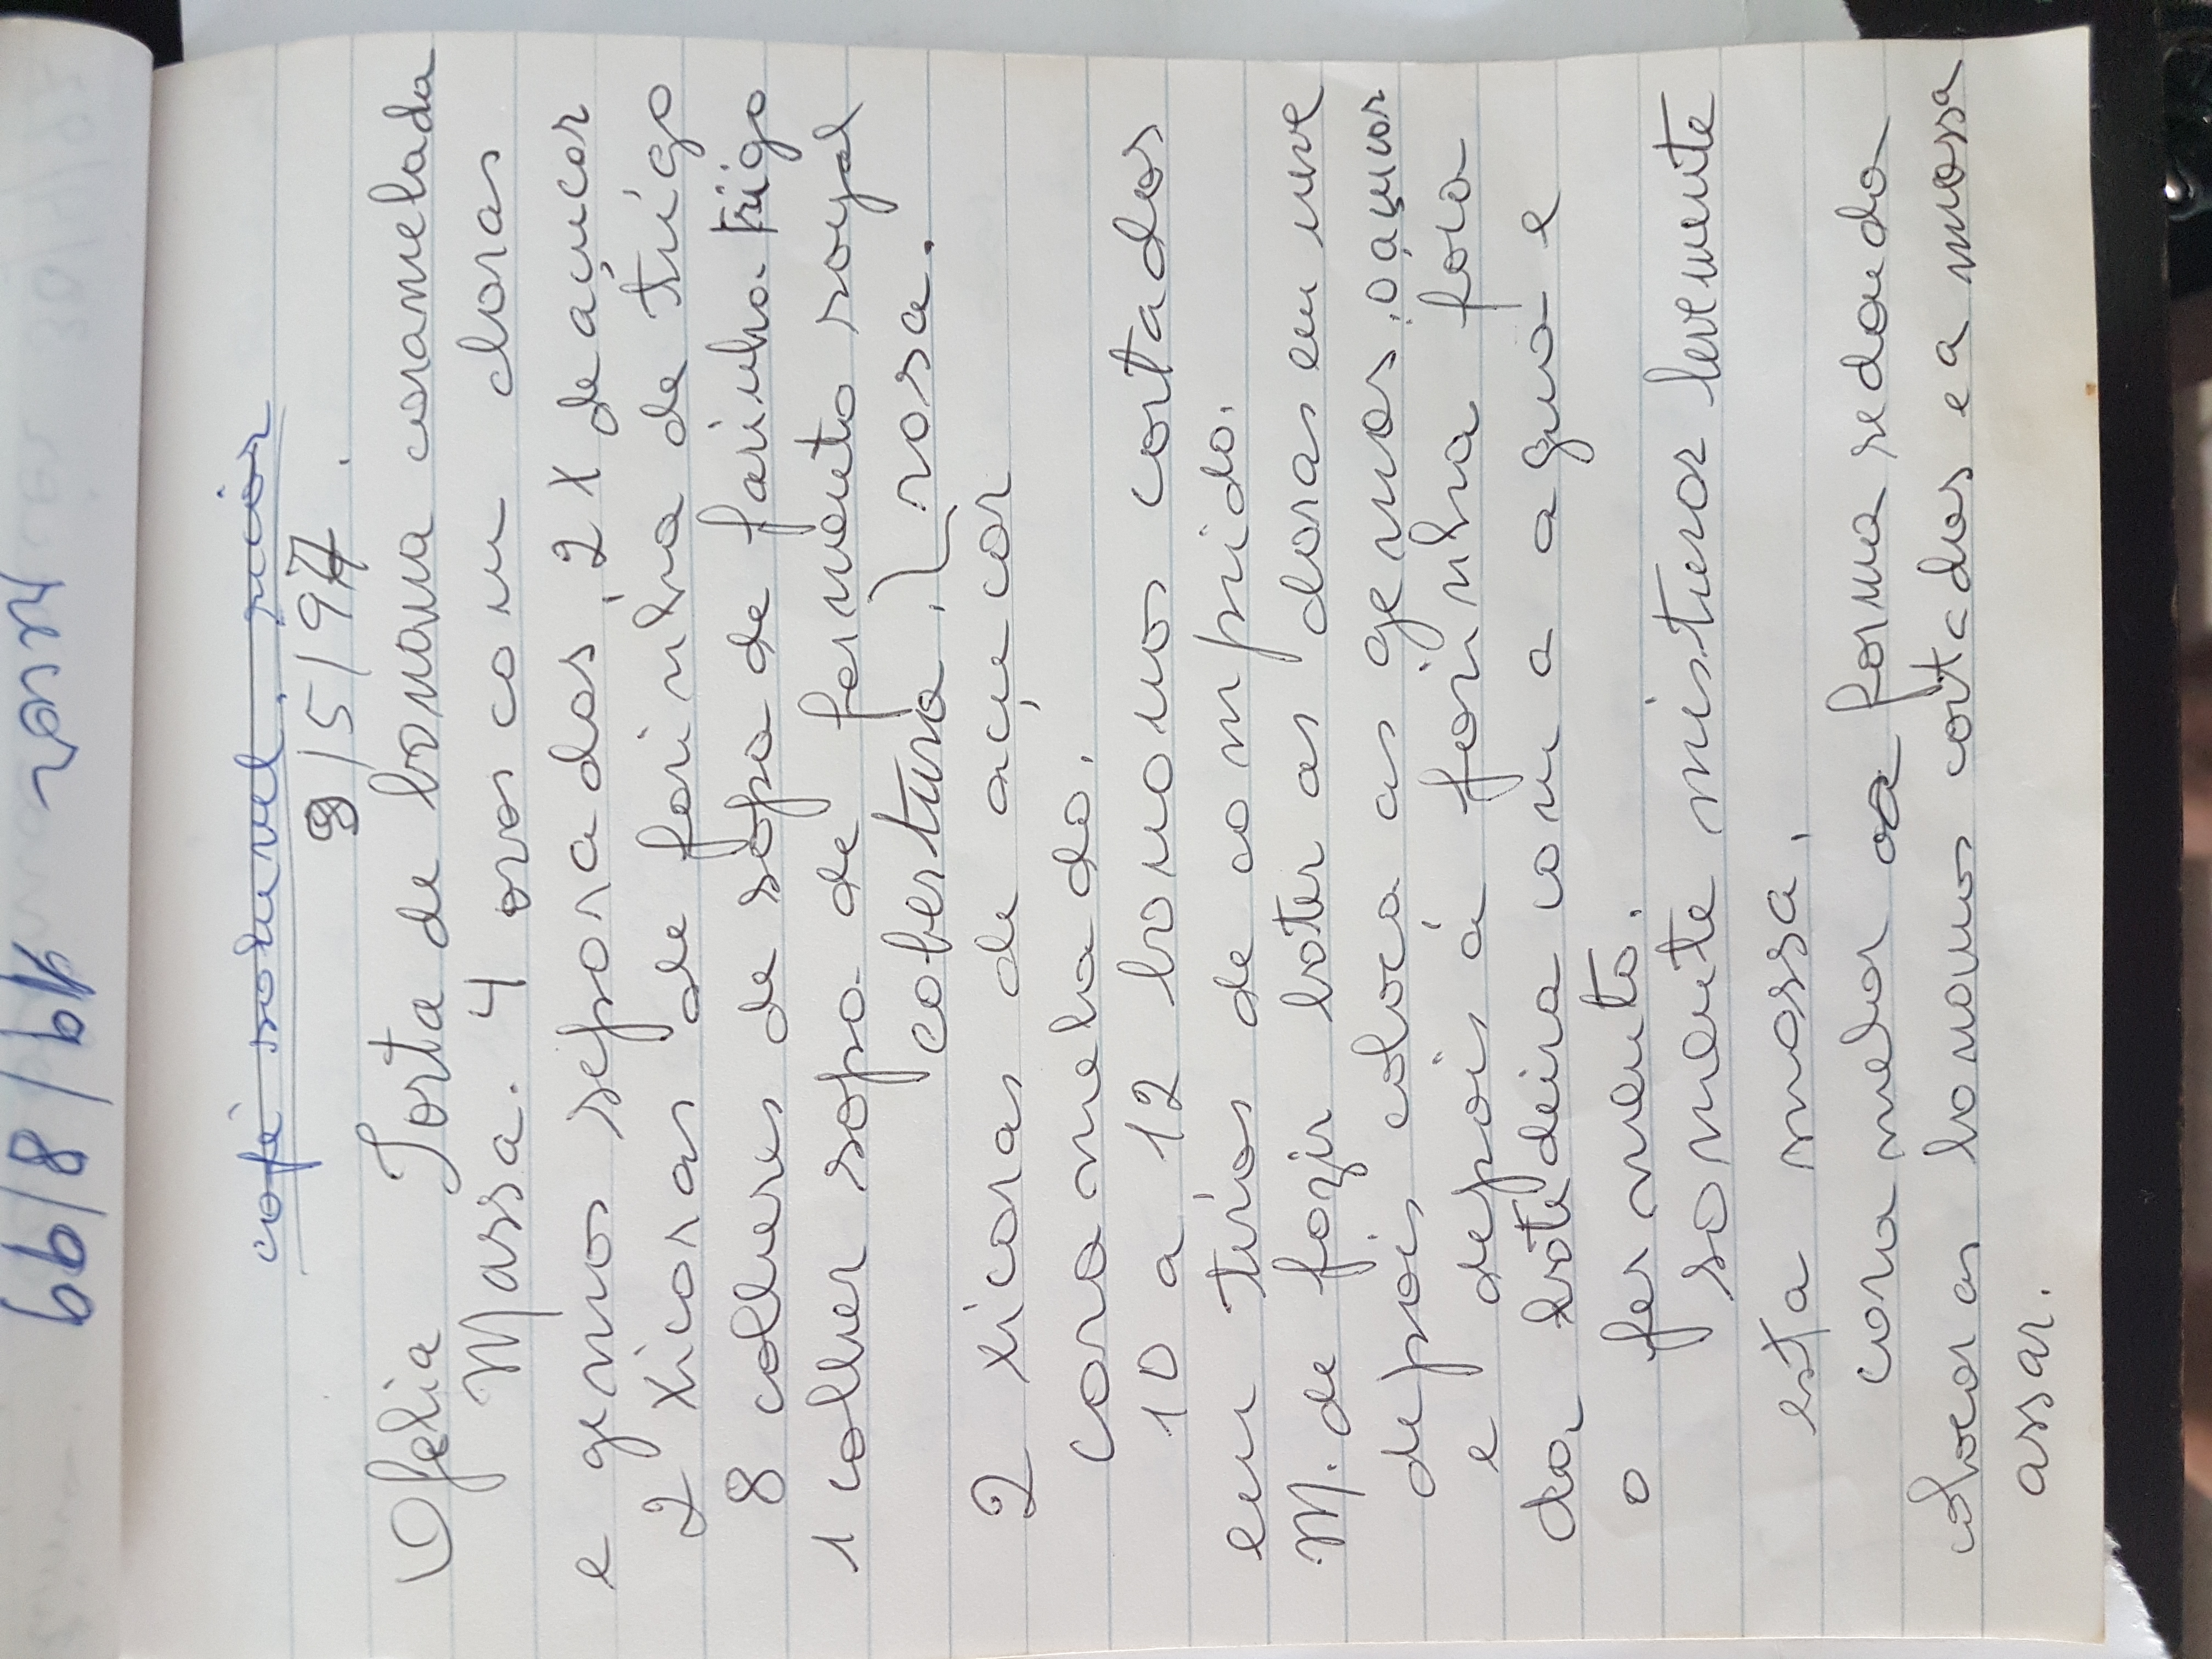 café soluvel. ricór
9/5/97.
Ofelia Torta de banana caramelada
Massa. 4 ovos com claras
e gemas separadas, 2 X de açucar
2 xicaras de farinha de trigo
8 colheres de sopa de farinha trigo
1 colher sopa de fermento royal
cobertura. rosa.
2 xicaras de açucar
caramelado.
10 a 12 bananas cortadas
em tiras de comprido.
M. de fazir bater as claras em neve
depois coloca as gemas, o açucar
e depois á farinha fóra
da batedeira com a agua e
o fermento.
somente misturar levemente
esta massa,
caramelar a forma redonda
colocar as bananas cortadas e a massa
assar.